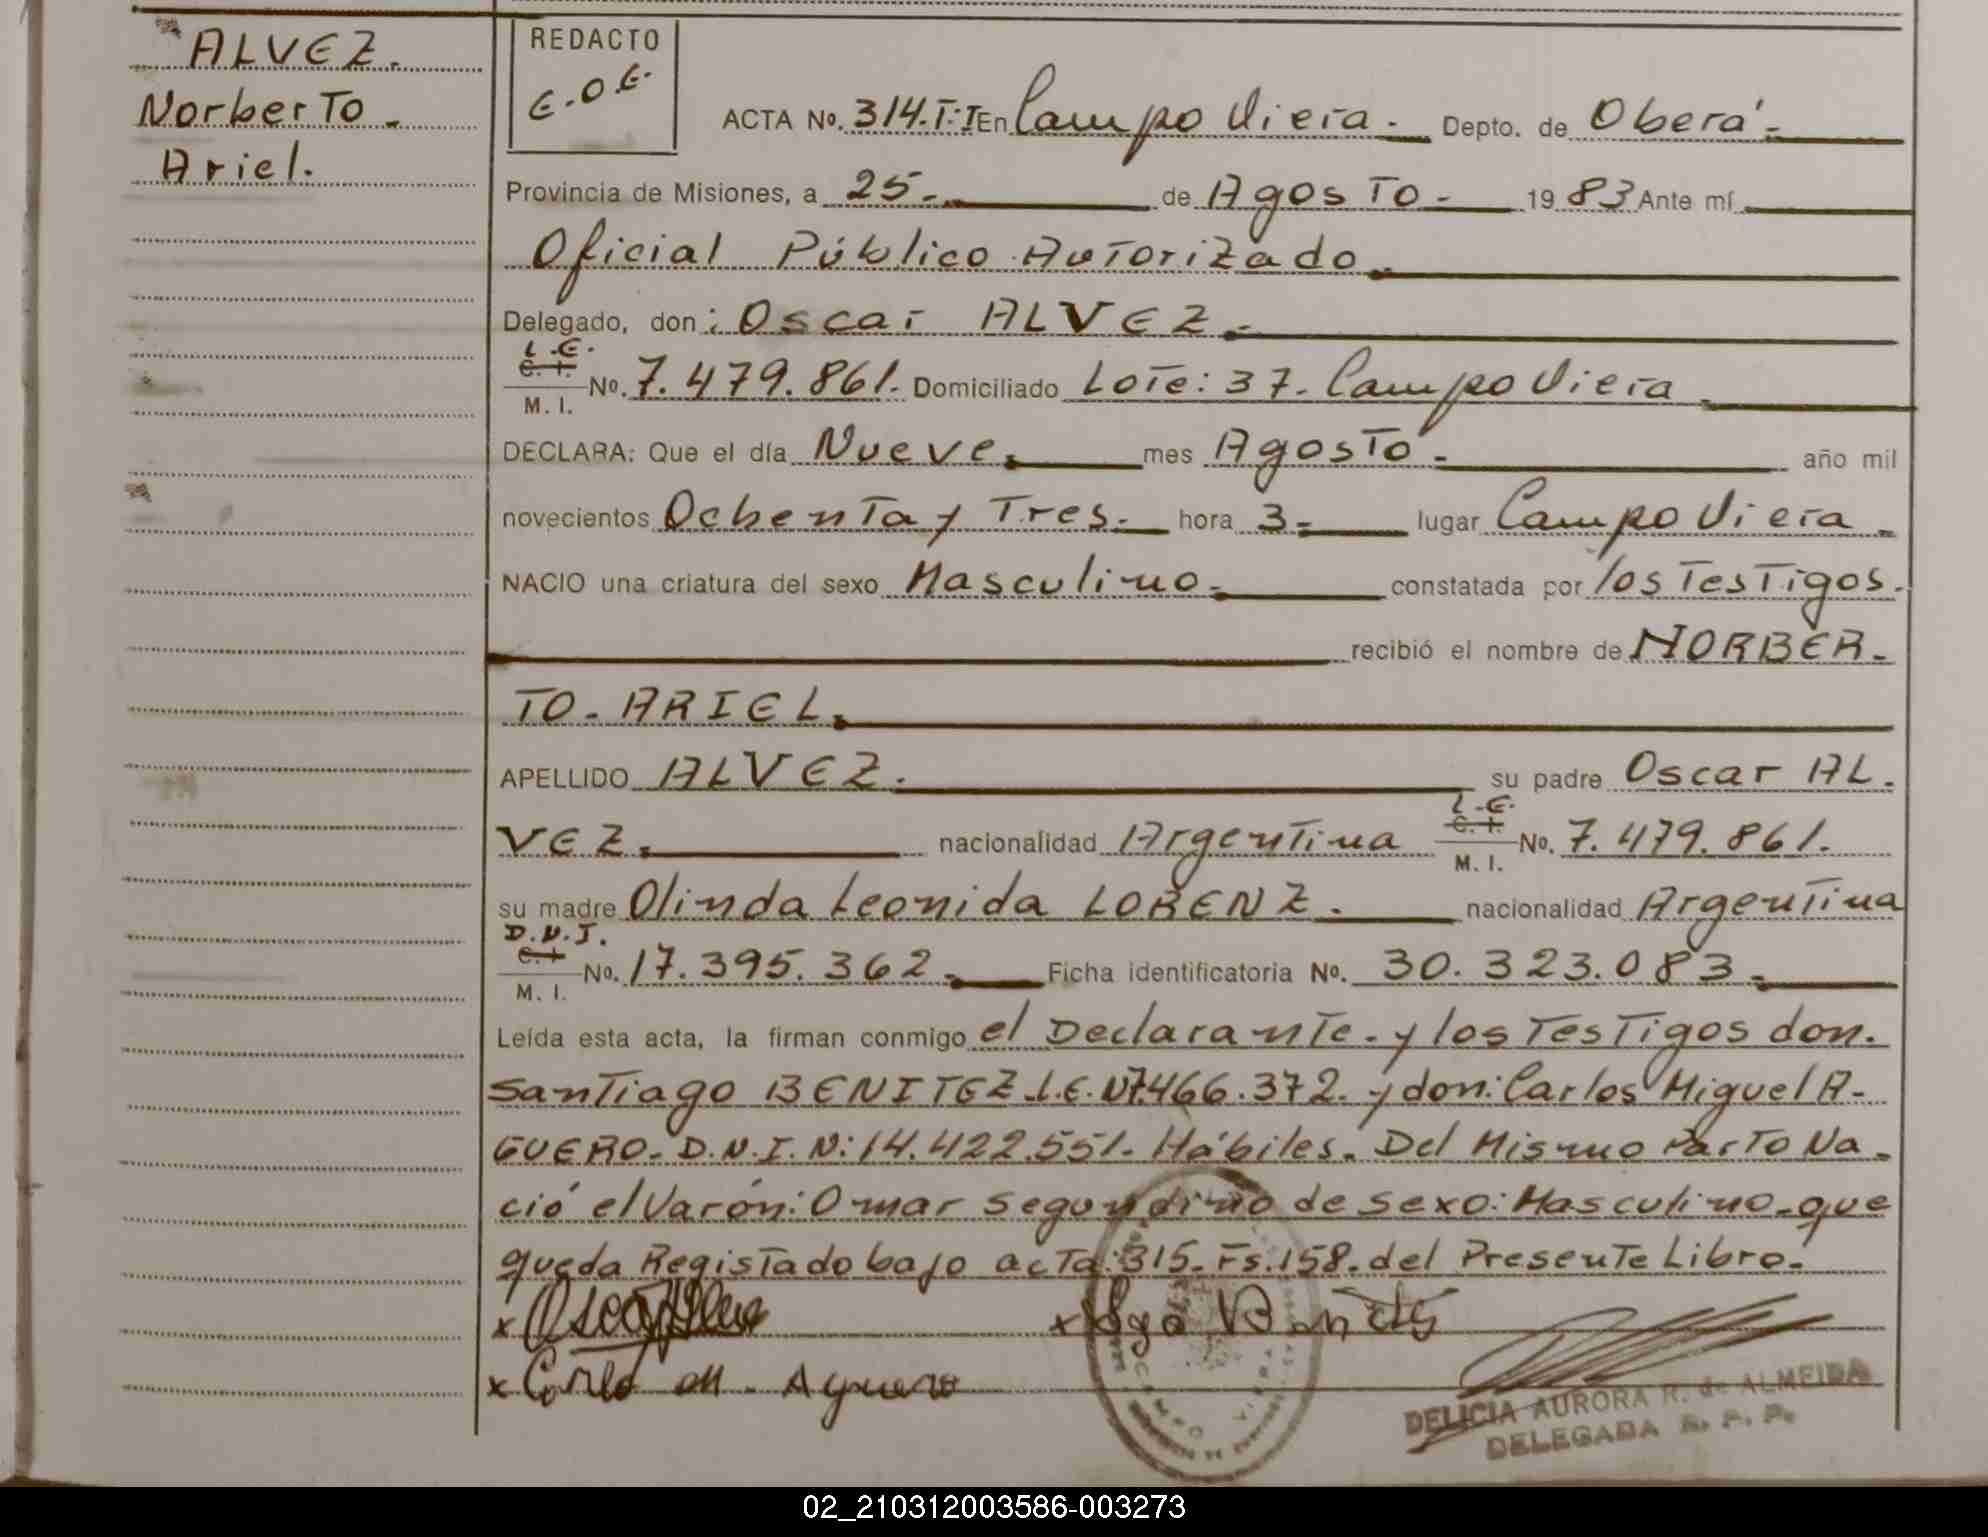 ALVEZ.
Norberto -
Ariel.
REDACTO
E.O.E.
ACTA No. 314.T:I En Campo Viera - Depto. de Oberá -
Provincia de Misiones, a 25 - de Agosto - 1983 Ante mí
Oficial Público Autorizado.
Delegado, don: Oscar ALVEZ.
L.E.
C. I.
M. I. No. 7.479.861. Domiciliado Lote: 37. Campo Viera
DECLARA: Que el día Nueve. mes Agosto - año mil
novecientos Ochenta y Tres. hora 3 - lugar Campo Viera -
NACIO una criatura del sexo Masculino - constatada por los Testigos.
recibió el nombre de NORBER-
TO - ARIEL.
APELLIDO ALVEZ. su padre Oscar AL.
VEZ. nacionalidad Argentina L.E. C. I. M. I. No. 7.479.861.
su madre Olinda Leonida LORENZ. nacionalidad Argentina
D.N.I.
C. I.
M. I. No. 17.395.362. Ficha identificatoria No. 30.323.083.
Leída esta acta, la firman conmigo el Declarante - y los Testigos don.
Santiago BENITEZ L.E. N7.466.372. y don: Carlos Miguel A-
GUERO - D.N.I. N: 14.422.551 - Hábiles. Del Mismo Parto Na-
ció el Varón: Omar Segundino de sexo: Masculino - que
queda Registado bajo acta: 315. Fs. 158. del Presente Libro.
DELICIA AURORA R. de ALMEIDA
DELEGADA R. P. P.
02_210312003586-003273